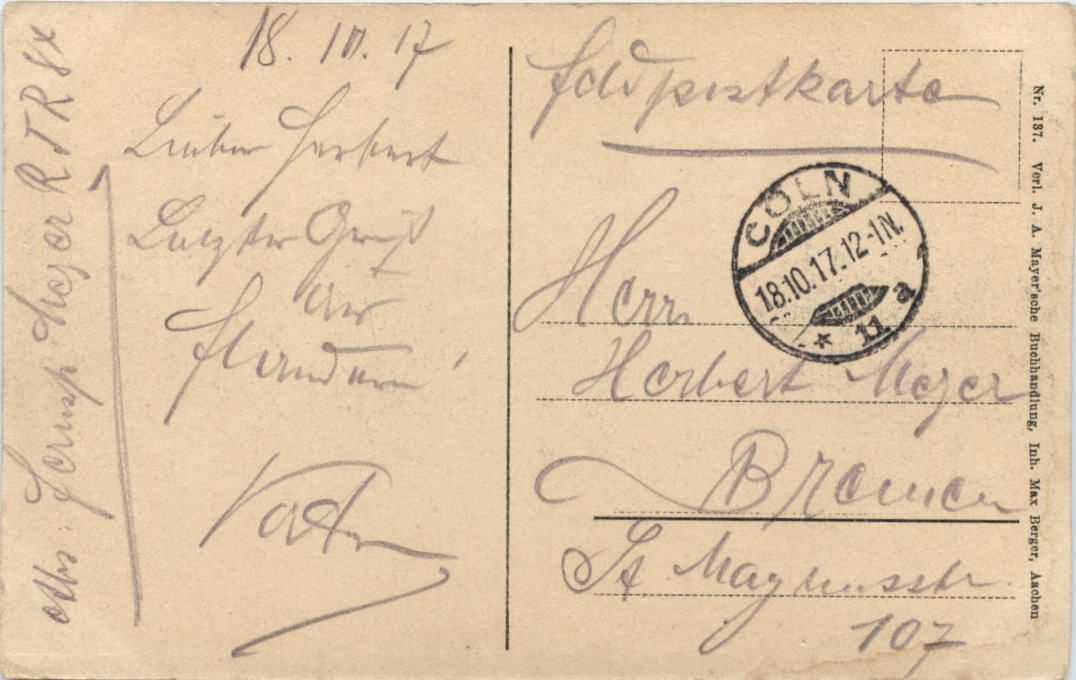 18. 10. 17
Lieber Herbert
Letzter Gruß
aus
Flandern!
Vater
Abs: Meyer R J R 84
Feldpostkarte
Herrn
Herbert Meyer
Bremen
St Magnusstr.
107
CÖLN
18.10.17.12-1N.
* 11 a
Nr. 187. Verl. J. A. Mayer'sche Buchhandlung, Inh. Max Berger, Aachen